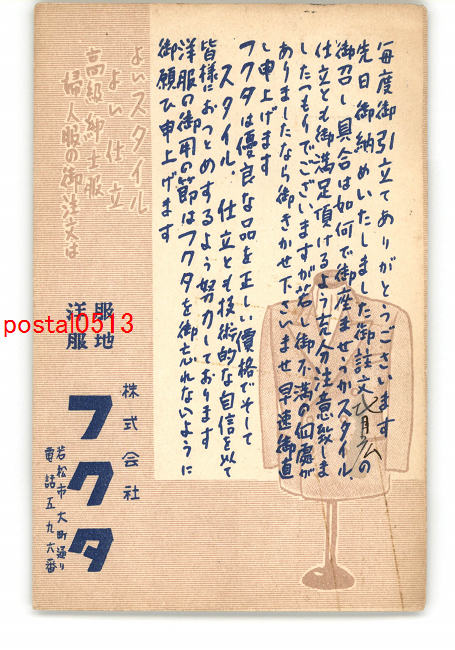 毎度御引立てありがとうございます
先日御納めいたしました御註文の
御召し具合は如何で御座ませうかスタイル、
仕立とも御満足頂けるよう充分注意致しま
したつもりでございますが若し御不満の個處が
ありましたなら御きかせ下さいませ早速御直
し申上げます
フクタは優良な品を正しい價格でそして
スタイル、仕立とも技術的な自信を以て
皆様におつとめするよう努力しております
洋服の御用の節はフクタを御忘れないように
御願ひ申上げます
よいスタイル
よい仕立
高級紳士服
婦人服の御注文は
服地
洋服
株式会社
フクタ
若松市大町通り
電話五九六番
postal0513